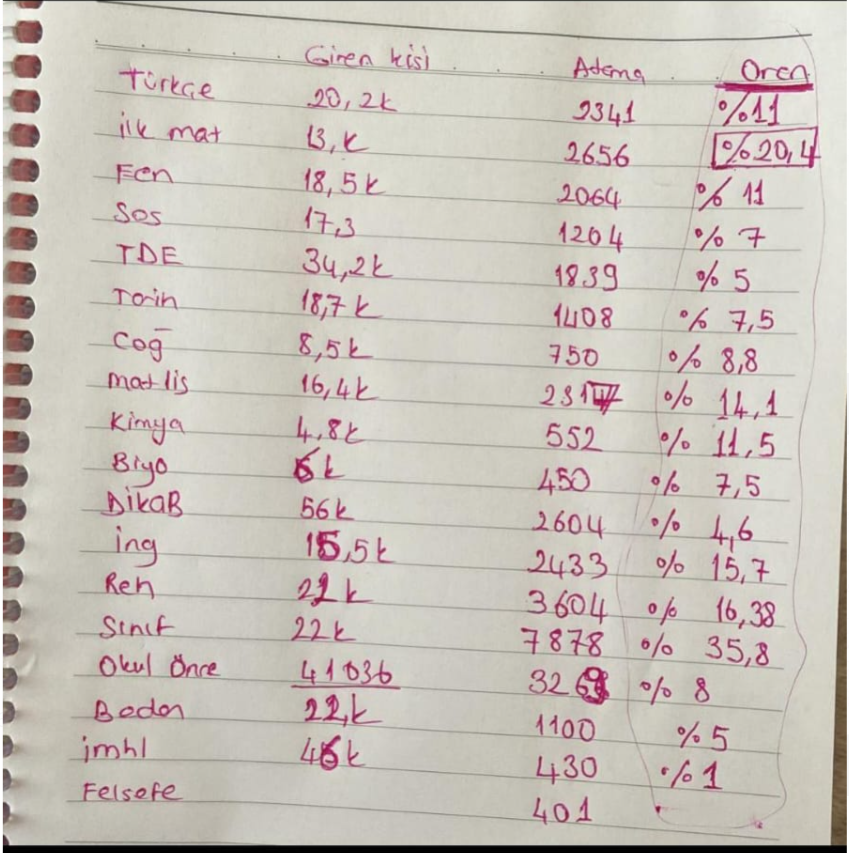 Giren kişi Atama Oran
Türkçe 20,2k 2341 %11
ilk mat 13,k 2656 %20,4
Fen 18,5k 2064 % 11
Sos 17,3 1204 % 7
TDE 34,2k 1839 % 5
Tarih 18,7k 1408 % 7,5
Coğ 8,5k 750 % 8,8
mat lis 16,4k % 14,1
Kimya 4,8k 552 % 11,5
Biyo 6k 450 % 7,5
DikaB 56k 2604 % 4,6
ing 15,5k 2433 % 15,7
Reh 22k 3604 % 16,38
Sınıf 22k 7878 % 35,8
Okul Önce 41036 3269 % 8
Beden 22,k 1100 %5
imhl 46k 430 %1
Felsefe 401